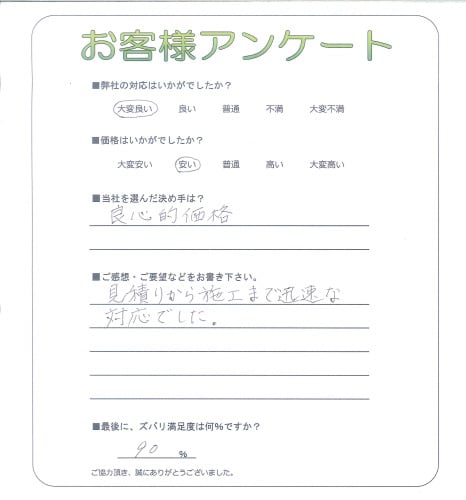 お客様アンケート
■弊社の対応はいかがでしたか?
大変良い 良い 普通 不満 大変不満
■価格はいかがでしたか?
大変安い 安い 普通 高い 大変高い
■当社を選んだ決め手は?
良心的価格
■ご感想・ご要望などをお書き下さい。
見積りから施工まで迅速な
対応でした。
■最後に、ズバリ満足度は何%ですか?
90 %
ご協力頂き、誠にありがとうございました。